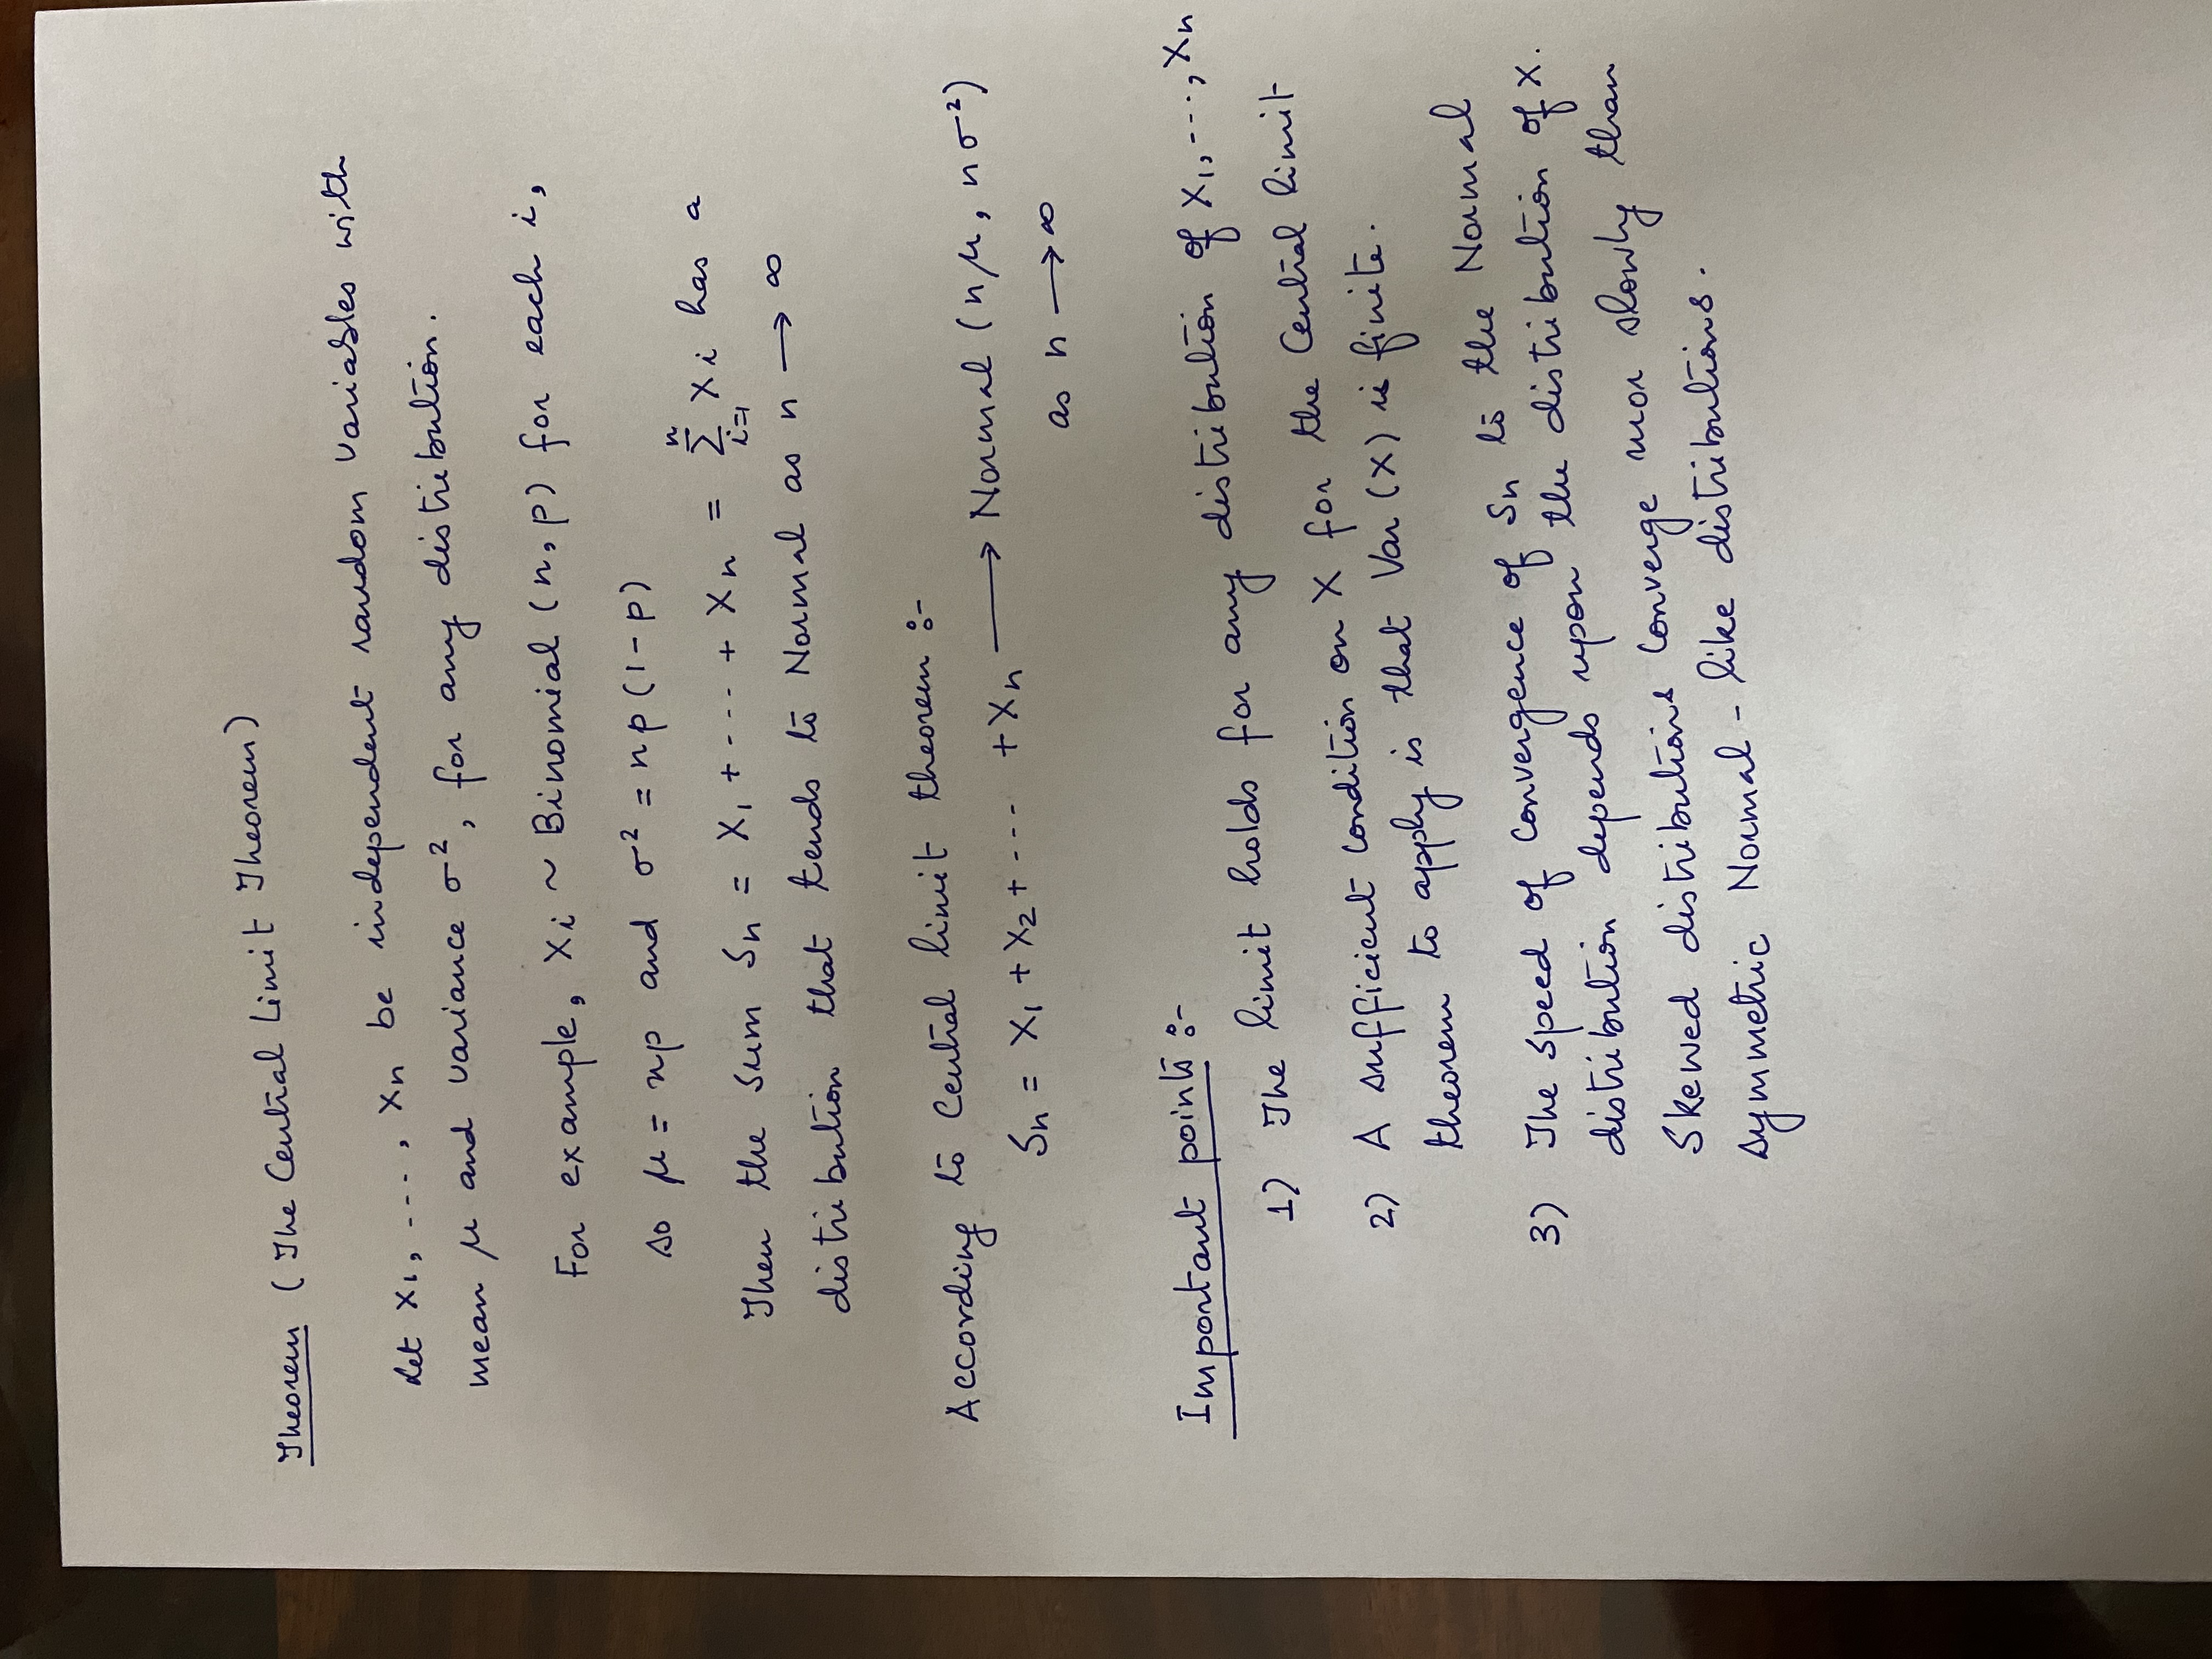 Theorem (The Central Limit Theorem)
Let X1, ---- , Xn be independent random variables with
mean μ and variance σ², for any distribution.
For example, Xi ~ Binomial (n, p) for each i,
so μ = np and σ² = np(1-p)
Then the sum Sn = X1 + ---- + Xn = Σ_{i=1}^{n} Xi has a
distribution that tends to Normal as n → ∞
According to Central limit theorem :-
Sn = X1 + X2 + ---- + Xn ⟶ Normal (nμ, nσ²)
as n → ∞
Important points :-
1) The limit holds for any distribution of X1, ---, Xn
2) A sufficient condition on X for the Central limit
theorem to apply is that Var (X) is finite.
3) The speed of convergence of Sn to the Normal
distribution depends upon the distribution of X.
Skewed distributions converge mor slowly than
symmetric Normal - like distributions.